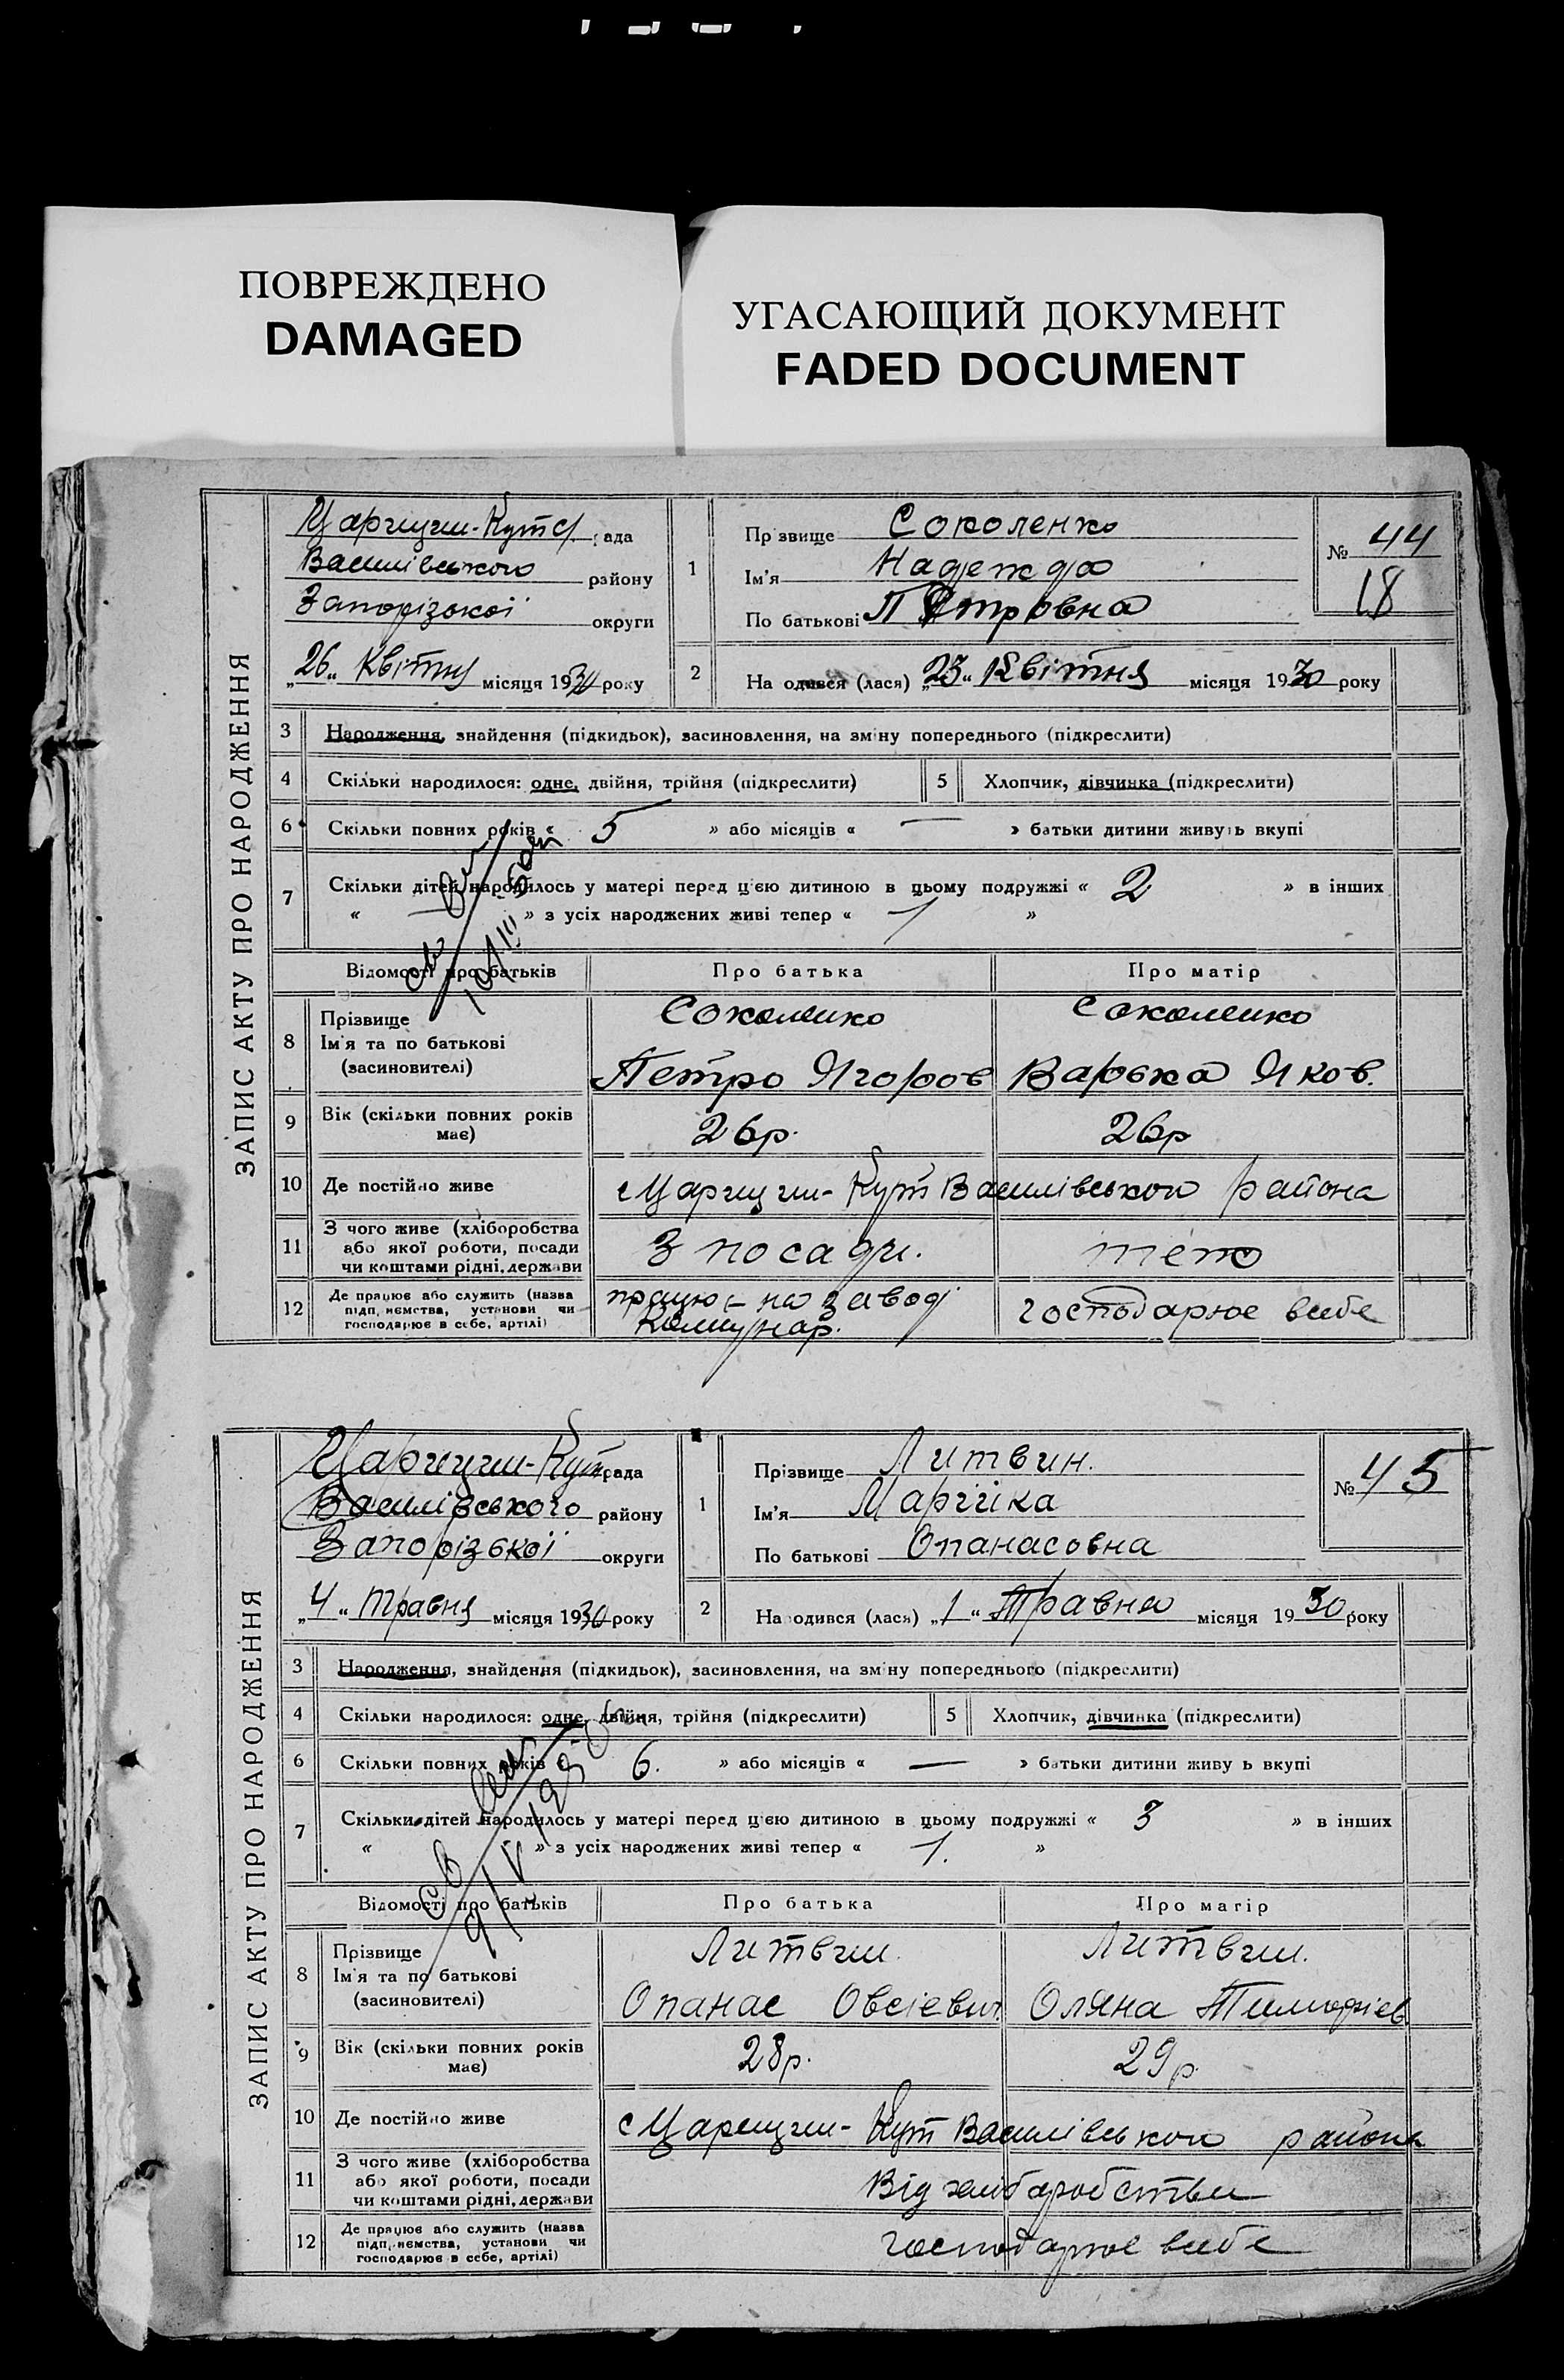 ПОВРЕЖДЕНО
DAMAGED
УГАСАЮЩИЙ ДОКУМЕНТ
FADED DOCUMENT
ЗАПИС АКТУ ПРО НАРОДЖЕННЯ
Царицин-Кутс. рада
Василівського району
Запорізської округи
„26“ Квітня місяця 1930 року
1 Прізвище Соколенко
Ім'я Надежда
По батькові Петровна
№ 44
18
2 На одився (лася) „23“ Квітня місяця 1930 року
3 Народження, знайдення (підкидьок), засиновлення, на зміну попереднього (підкреслити)
4 Скільки народилося: одне, двійня, трійня (підкреслити) 5 Хлопчик, дівчинка (підкреслити)
6 Скільки повних років « 5 » або місяців « — » батьки дитини живуть вкупі
7 Скільки дітей народилось у матері перед цією дитиною в цьому подружжі « 2 » в інших
« — » з усіх народжених живі тепер « 1 »
Відомості про батьків Про батька Про матір
8 Прізвище Соколенко Соколенко
Ім'я та по батькові
(засиновителі) Петро Ягоров Варвка Яков.
9 Вік (скільки повних років має) 26р. 26р
10 Де постійно живе с Царицин-Кут Василівського района
11 З чого живе (хліборобства
або якої роботи, посади З посади. тєто
чи коштами рідні, держави
12 Де працює або служить (назва працює на заводі
підприємства, установи чи Коммунар. господарює в себе
господарює в себе, артілі)
ЗАПИС АКТУ ПРО НАРОДЖЕННЯ
Царицин-Кут рада
Василівського району
Запорізької округи
„4“ Травня місяця 1930 року
1 Прізвище Литвин.
Ім'я Марійка
По батькові Опанасовна
№ 45
2 На одився (лася) „1“ Травня місяця 1930 року
3 Народження, знайдення (підкидьок), засиновлення, на зміну попереднього (підкреслити)
4 Скільки народилося: одне, двійня, трійня (підкреслити) 5 Хлопчик, дівчинка (підкреслити)
6 Скільки повних років « 6. » або місяців « — » батьки дитини живу ь вкупі
7 Скільки дітей народилось у матері перед цією дитиною в цьому подружжі « 3 » в інших
« » з усіх народжених живі тепер « 1. »
Відомості про батьків Про батька Про матір
8 Прізвище Литвин. Литвин.
Ім'я та по батькові
(засиновителі) Опанас Овсієвич Оляна Тимофієв
9 Вік (скільки повних років має) 28р. 29р
10 Де постійно живе с Царицин-Кут Василівського района
11 З чого живе (хліборобства
або якої роботи, посади Від хліборобства
чи коштами рідні, держави
12 Де працює або служить (назва
підприємства, установи чи господарює в себе
господарює в себе, артілі)